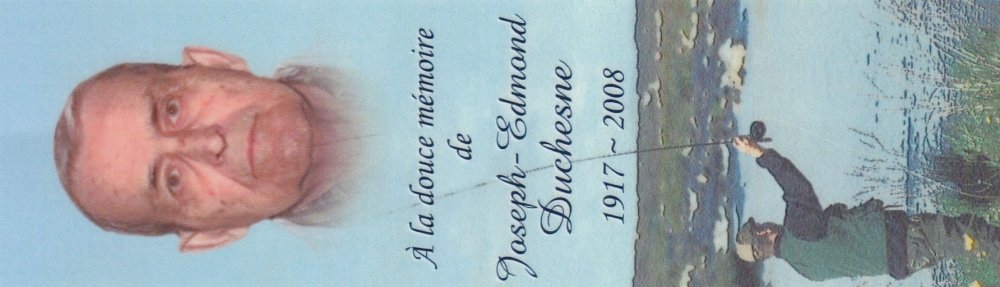 À la douce mémoire
de
Joseph-Edmond
Duchesne
1917 ~ 2008